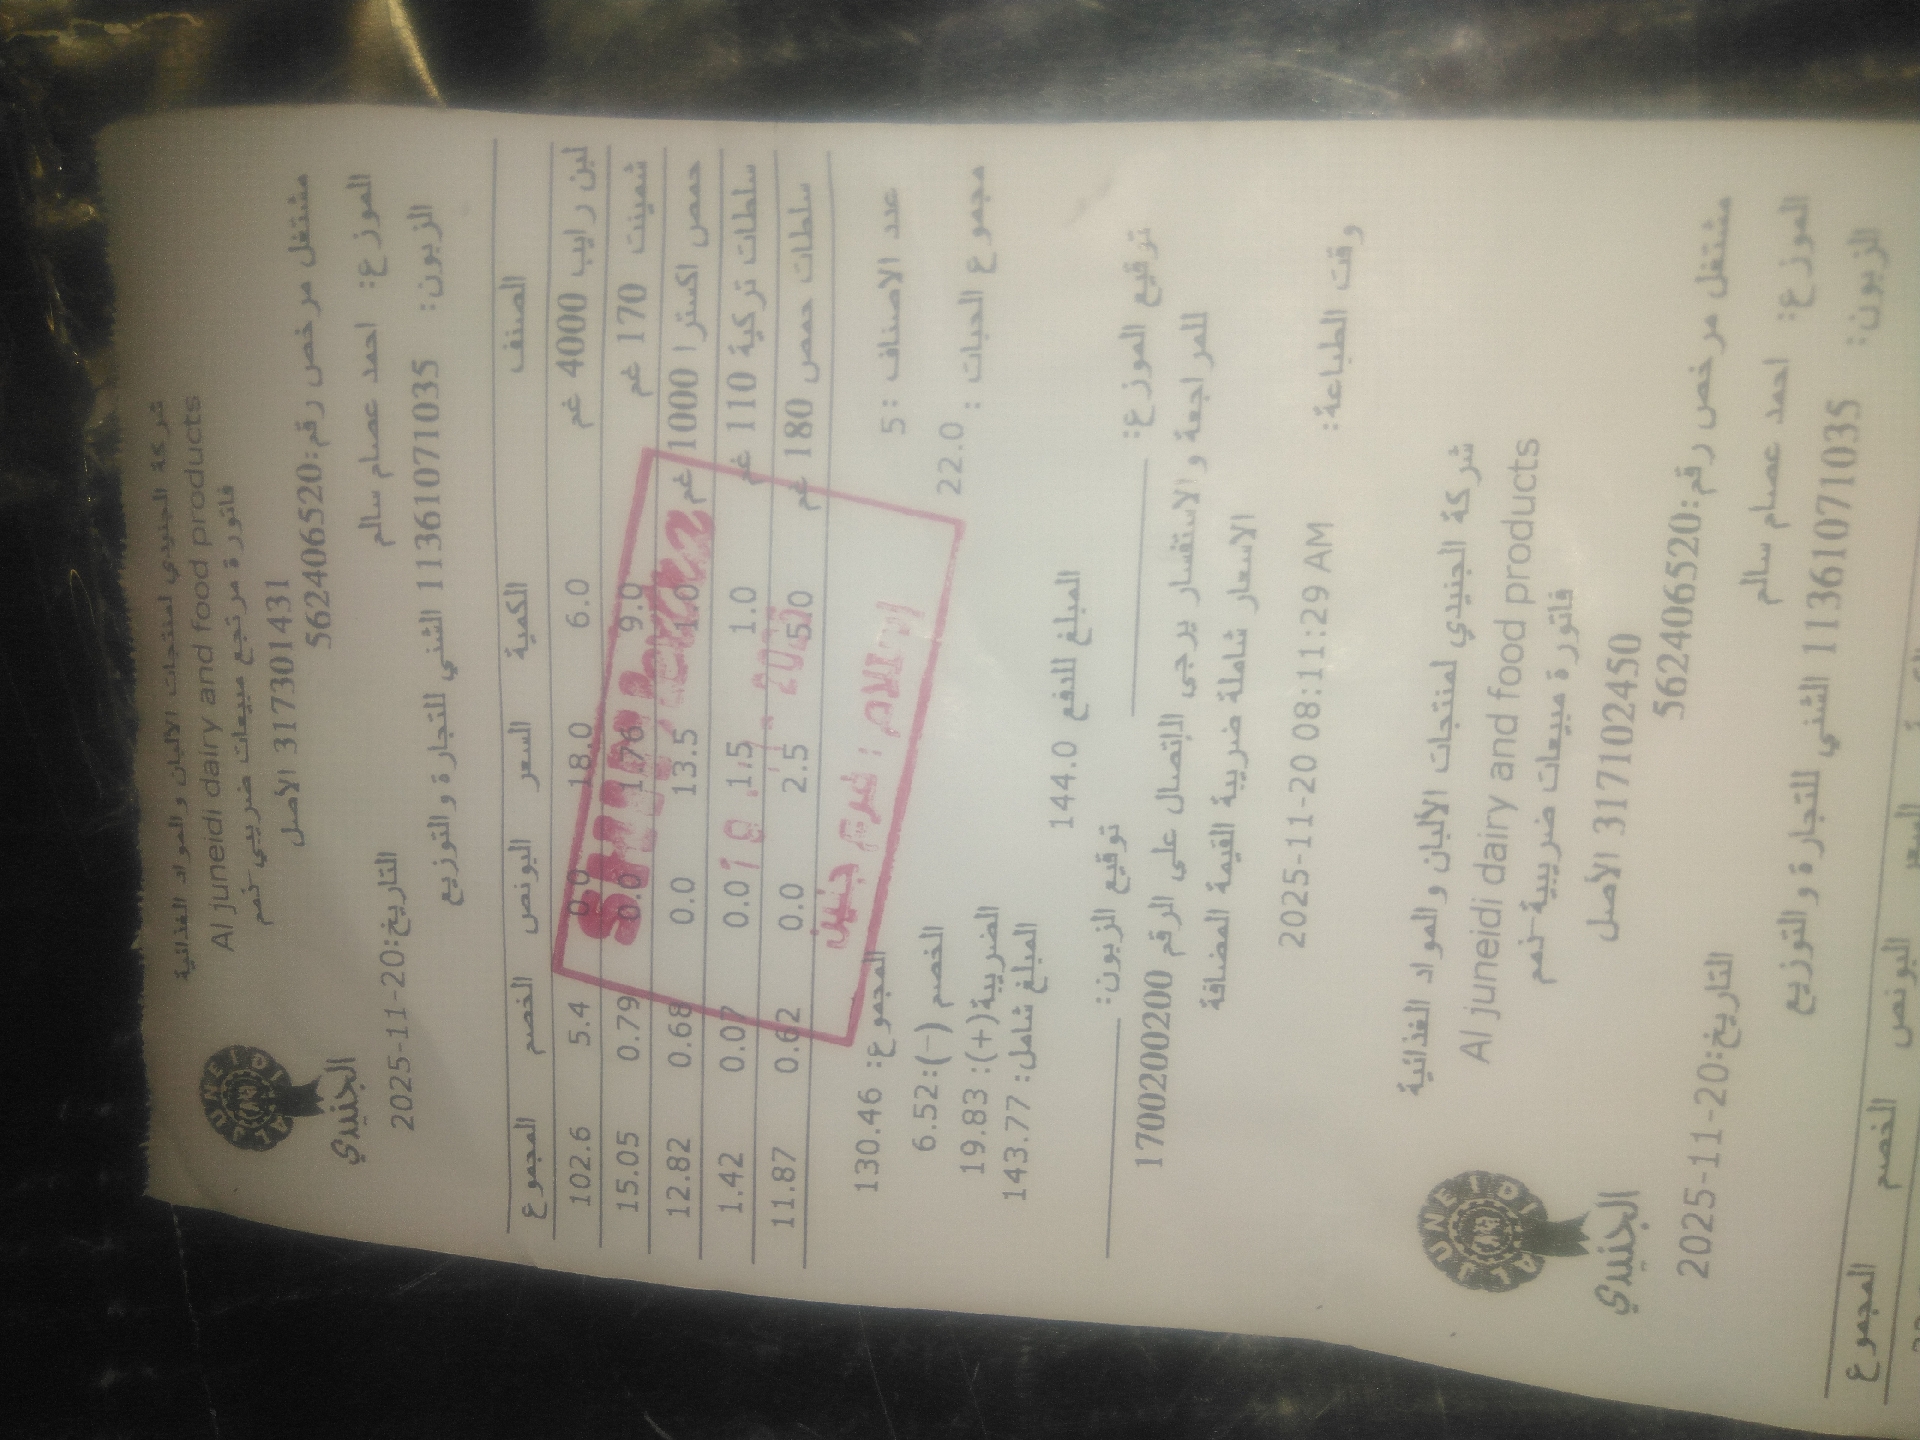 شركة الجنيدي لمنتجات الالبان والمواد الغذائية
Al juneidi dairy and food products
فاتورة مرتجع مبيعات ضريبي-ذمم
317301431 الأصل
مشتغل مرخص رقم:562406520
AL JUNEIDI
الجنيدي
الموزع: احمد عصام سالم
التاريخ:2025-11-20
الزبون: 1136107‎1035 الشني للتجارة والتوزيع
الصنف الكمية السعر البونص الخصم المجموع
لبن رايب 4000 غم 6.0 18.0 0.0 5.4 102.6
شمينت 170 غم 9.0 1.76 0.0 0.79 15.05
حمص اكسترا 1000 غم 1.0 13.5 0.0 0.68 12.82
سلطات تركية 110 غم 1.0 1.5 0.0 0.07 1.42
سلطات حمص 180 غم 5.0 2.5 0.0 0.62 11.87
عدد الاصناف :5
المجموع: 130.46
مجموع الحبات : 22.0
الخصم (-):6.52
الضريبة(+): 19.83
المبلغ شامل: 143.77
المبلغ للدفع 144.0
توقيع الموزع:
توقيع الزبون:
للمراجعة والاستفسار يرجى الاتصال على الرقم 1700200200
الاسعار شاملة ضريبة القيمة المضافة
وقت الطباعة: 2025-11-20 08:11:29 AM
شركة الجنيدي لمنتجات الالبان والمواد الغذائية
Al juneidi dairy and food products
فاتورة مبيعات ضريبية-ذمم
317102450 الأصل
مشتغل مرخص رقم:562406520
AL JUNEIDI
الجنيدي
الموزع: احمد عصام سالم
التاريخ:2025-11-20
الزبون: 11361071035 الشني للتجارة والتوزيع
السعر البونص الخصم المجموع